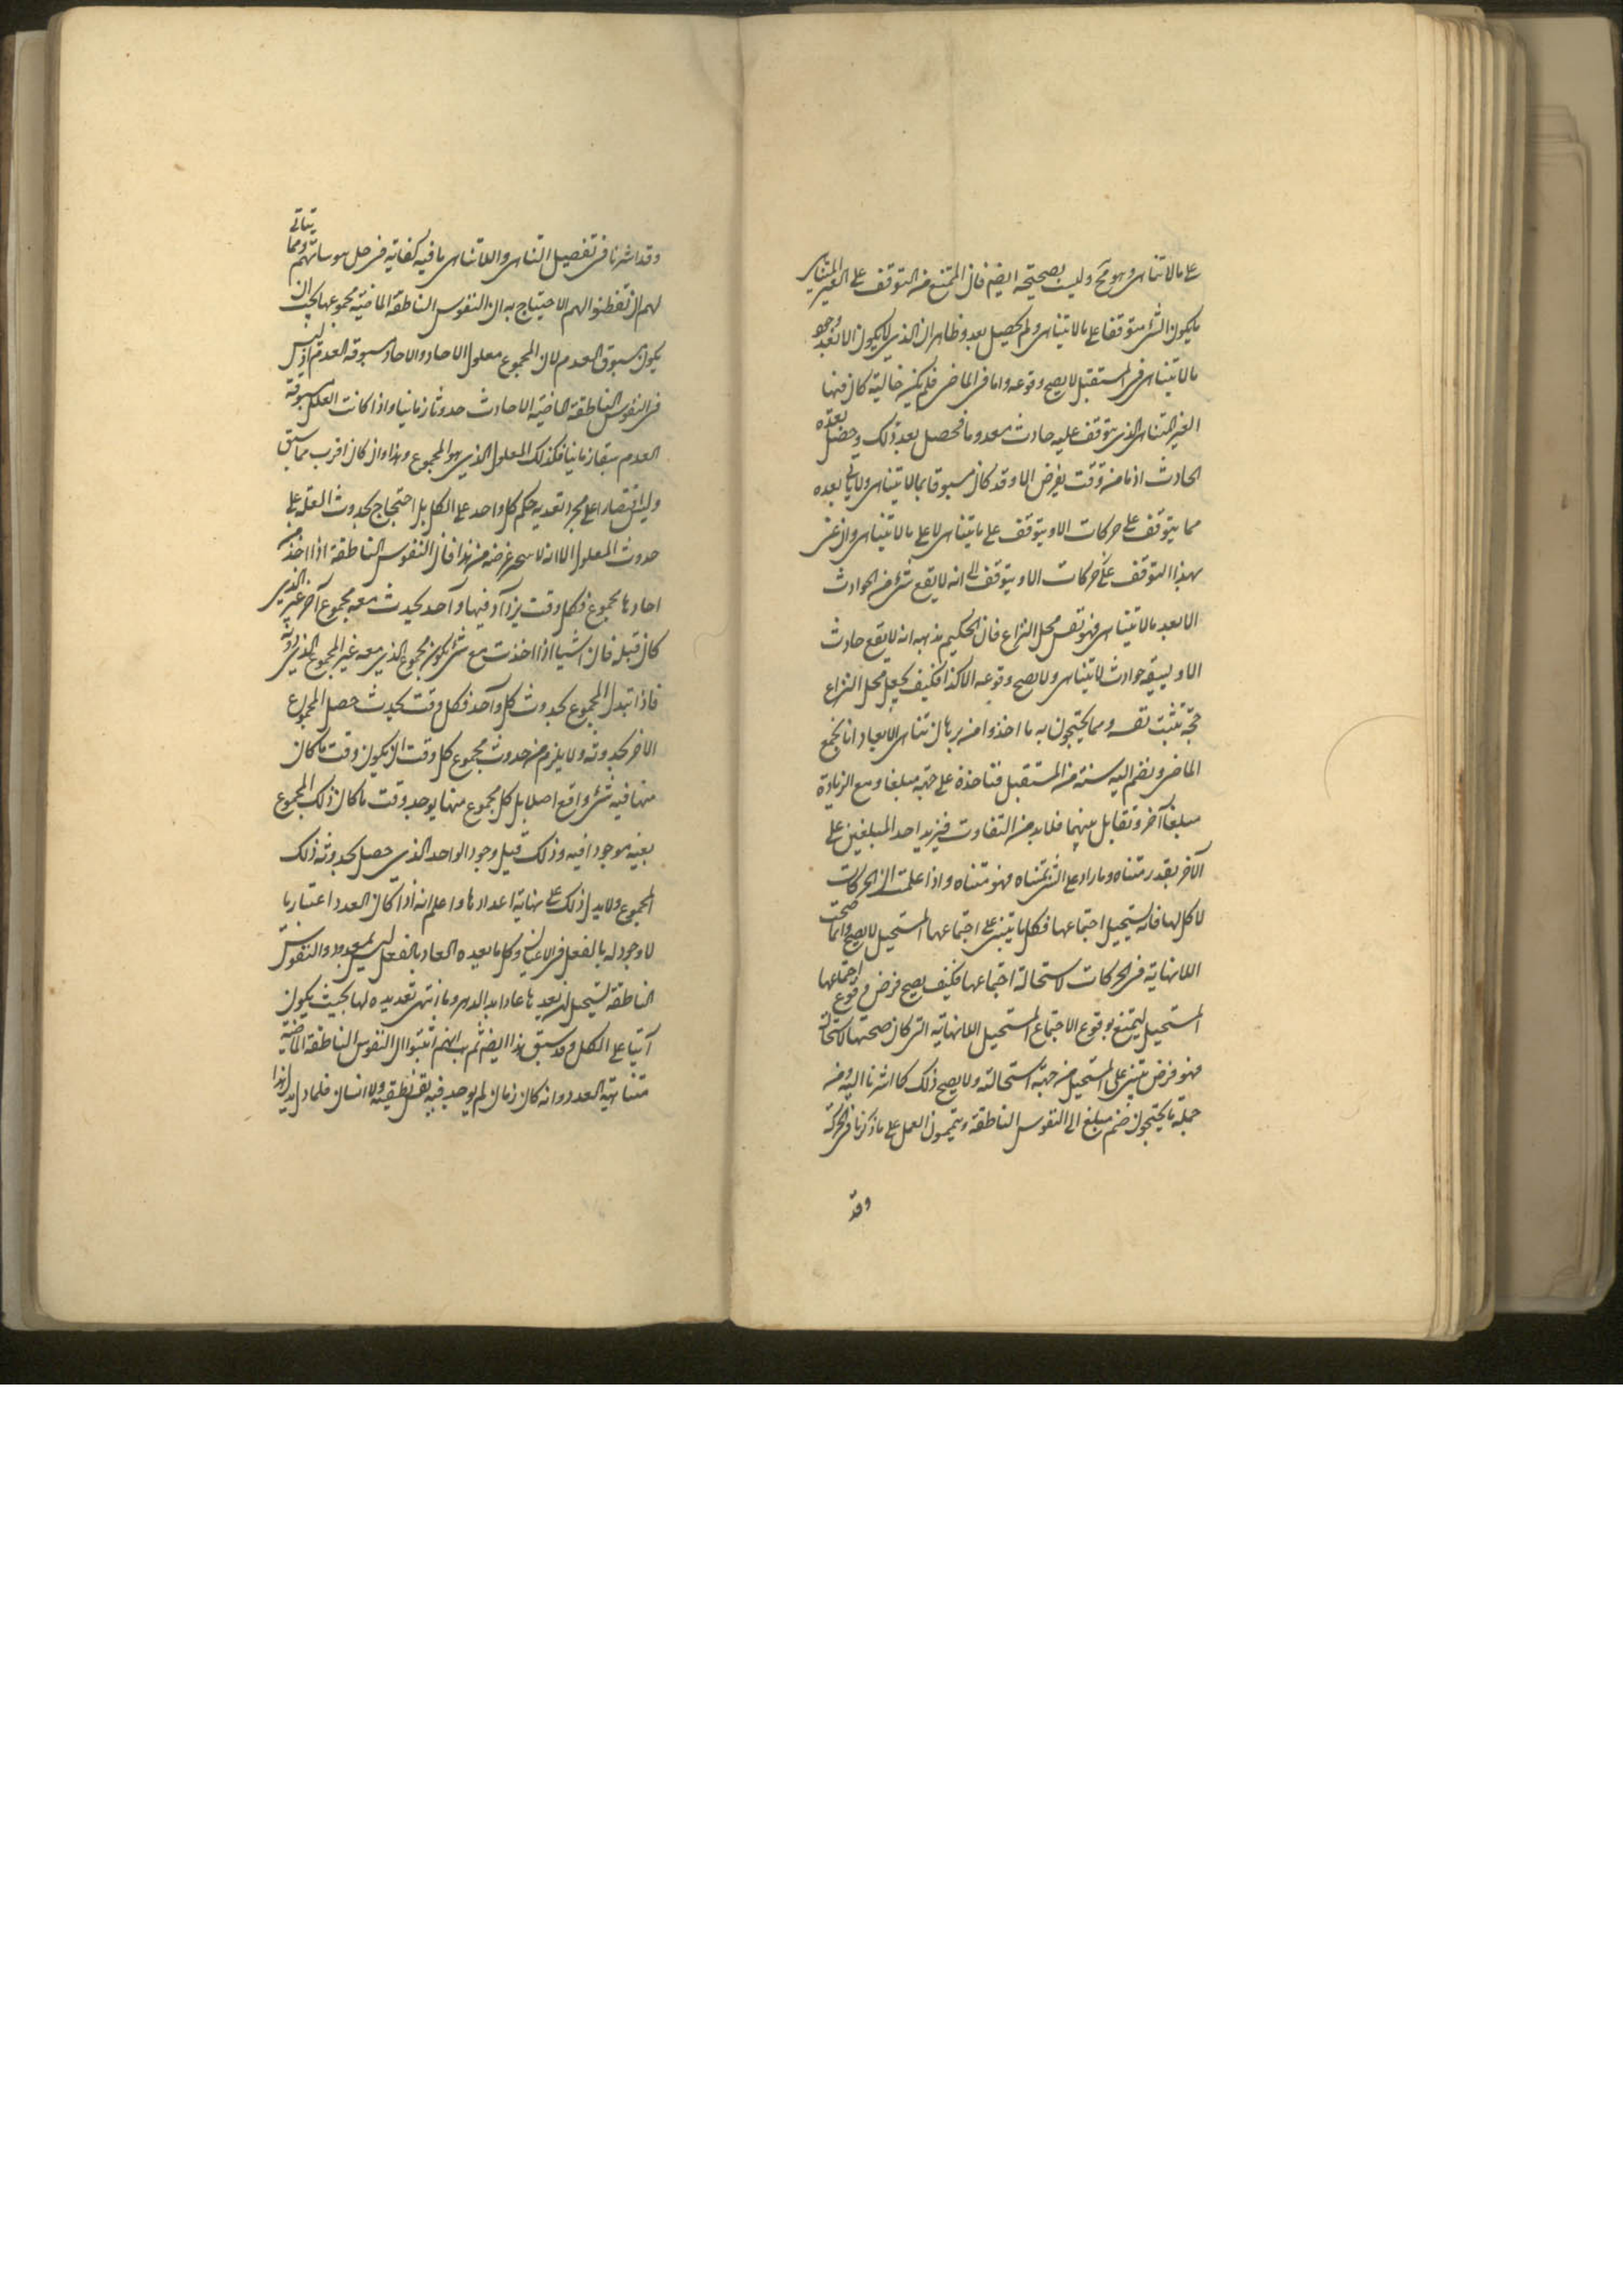 على ما لا يتناهى وهو مح وليست بصحيحة ايضم فان الممتنع من التوقف على الغير المتناهى
ما يكون الشئ متوقفا على ما لا يتناهى ولم يحصل بعد وظاهر ان الذى لا يكون الا بعد وجود
ما لا يتناهى فى المستقبل لا يصح وقوعه واما فى الماضى فلم يكن حالة كان فيها
الغير المتناهى الذى يتوقف عليه حادث معدوما فحصل بعد ذلك وحصل بعده
الحادث اذ ما من وقت يفرض الا وقد كان مسبوقا بما لا يتناهى ولا ياتى بعده
مما يتوقف على حركات الا ويتوقف على ما يتناهى لا على ما لا يتناهى وان عنى
بهذا التوقف على حركات الا ويتوقف الى انه لا يقع شئ من الحوادث
الا بعد ما لا يتناهى فهو نفس محل النزاع فان الحكيم مذهبه انه لا يقع حادث
الا و يسبقه حوادث لا يتناهى ولا يصح وقوعه الا كذا فكيف يجعل محل النزاع
حجة تثبت نفسه ومما يحتجون به ما اخذوا من برهان تناهى الابعاد انا نجمع
الماضى ونضم اليه سنة من المستقبل فناخذه على حدته مبلغا ومع الزيادة
مبلغا آخر ونقابل بينهما فلا بد من التفاوت فيزيد احد المبلغين على
الآخر بقدر متناه وما زاد على الشئ بمتناه فهو متناه واذا علمت ان الحركات
لا كل لها فانه يستحيل اجتماعها فكل ما يبتنى على اجتماعها المستحيل لا يصح وانما صحت
اللانهاية فى الحركات لاستحالة اجتماعها فكيف يصح فرض وقوع اجتماعها
المستحيل ليمتنع بوقوع الاجتماع المستحيل اللانهاية التى كان صحتها لاستحالته
فهو فرض يبتنى على المستحيل من جهة استحالته ولا يصح ذلك كما اشرنا اليه ومن
جملة ما يحتجون ضم مبلغ الى النفوس الناطقة ويتممون العمل على ما ذكرنا فى الحركة
وقد
وقد اشرنا فى تفصيل التناهى واللاتناهى ما فيه كفاية فى حل هوساتهم ومما يتاتى
لهم ان تفطنوا لهم الاحتجاج به ان النفوس الناطقة الماضية مجموعها يجب ان
يكون مسبوق العدم لان المجموع معلول الاحاد والاحاد مسبوقة العدم اذ ليس
فى النفوس الناطقة الماضية الا حادث حدوثا زمانيا واذا كانت العلل مسبوقة
العدم سبقا زمانيا فكذلك المعلول الذى هو المجموع وهذا وان كان اقرب مما سبق
وليس اقتصارا على مجرد تعدية حكم كل واحد على الكل بل احتجاج بحدوث العلة على
حدوث المعلول الا انه لا غرضه من هذا فان النفوس الناطقة اذا اخذ من
احادها مجموع فكل وقت يزداد فيها واحد يحدث معه مجموع آخر غير الذى
كان قبله فان اشياء اذا اخذت مع شئ يكون مجموع الذى معه غير المجموع الذى دونه
فاذا تبدل المجموع بحدوث كل واحد فكل وقت يحدث حصل المجموع
الاخر بحدوثه ولا يلزم من حدوث مجموع كل وقت ان يكون وقت ما كان
منها فيه شئ واقع اصلا بل كل مجموع منها يوجد وقت ما كان ذلك المجموع
بعينه موجودا فيه وذلك قبل وجود الواحد الذى حصل بحدوثه ذلك
المجموع ولا يدل ذلك على نهاية اعدادها واعلم انه اذا كان العدد اعتباريا
لا وجود له بالفعل فى الاعيان وكل ما يعده العاد بالفعل ليس بمعدود والنفوس
الناطقة يستحيل ان يعدها عاد ابد الدهر وما انتهى تعديده لها بحيث يكون
آتيا على الكل وقد سبق هذا ايضم ثم هب انهم اثبتوا ان النفوس الناطقة الماضية
متناهية العدد وانه كان زمان لم يوجد فيه نفس نطقية ولا انسان فلماذا يدل هذا